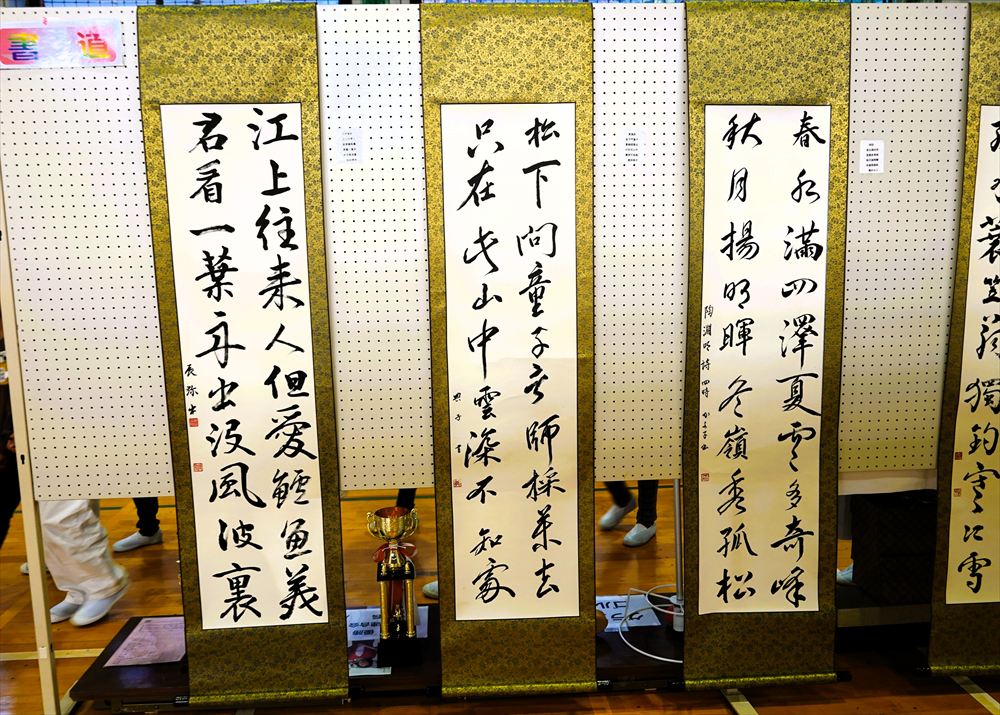 書道
孤舟蓑笠翁獨釣寒江雪
春水満四澤夏雲多奇峰
秋月揚明暉冬嶺秀孤松
陶淵明詩 四時
松下問童子言師採薬去
只在此山中雲深不知處
江上往来人但愛鱸魚美
君看一葉舟出没風波裏